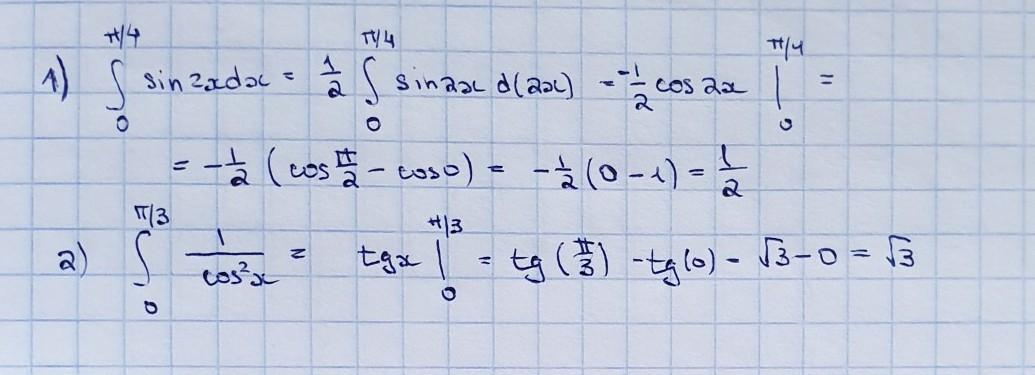 1) ∫₀^(π/4) sin2xdx = 1/2 ∫₀^(π/4) sin2x d(2x) = -1/2 cos2x |₀^(π/4) =
= -1/2 (cos π/2 - cos0) = -1/2 (0-1) = 1/2
2) ∫₀^(π/3) 1/cos²x = tgx |₀^(π/3) = tg(π/3) - tg(0) - √3-0 = √3